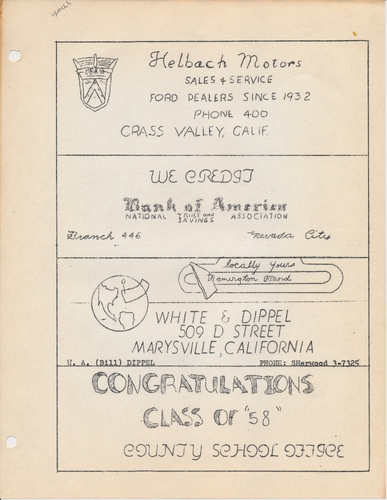 your
Helbach Motors
SALES & SERVICE
FORD DEALERS SINCE 1932
PHONE 400
GRASS VALLEY, CALIF.
WE CREDIT
Bank of America
NATIONAL TRUST AND SAVINGS ASSOCIATION
Branch 446 Nevada City
locally yours
Remington Rand
WHITE & DIPPEL
509 D STREET
MARYSVILLE, CALIFORNIA
W. A. (Bill) DIPPEL PHONE: SHerwood 3-7325
CONGRATULATIONS
CLASS OF "58"
COUNTY SCHOOL OFFICE